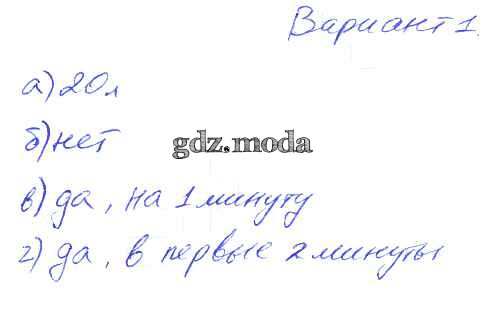 Вариант 1.
а) 20 л
б) нет
gdz.moda
в) да, на 1 минуту
г) да, в первые 2 минуты